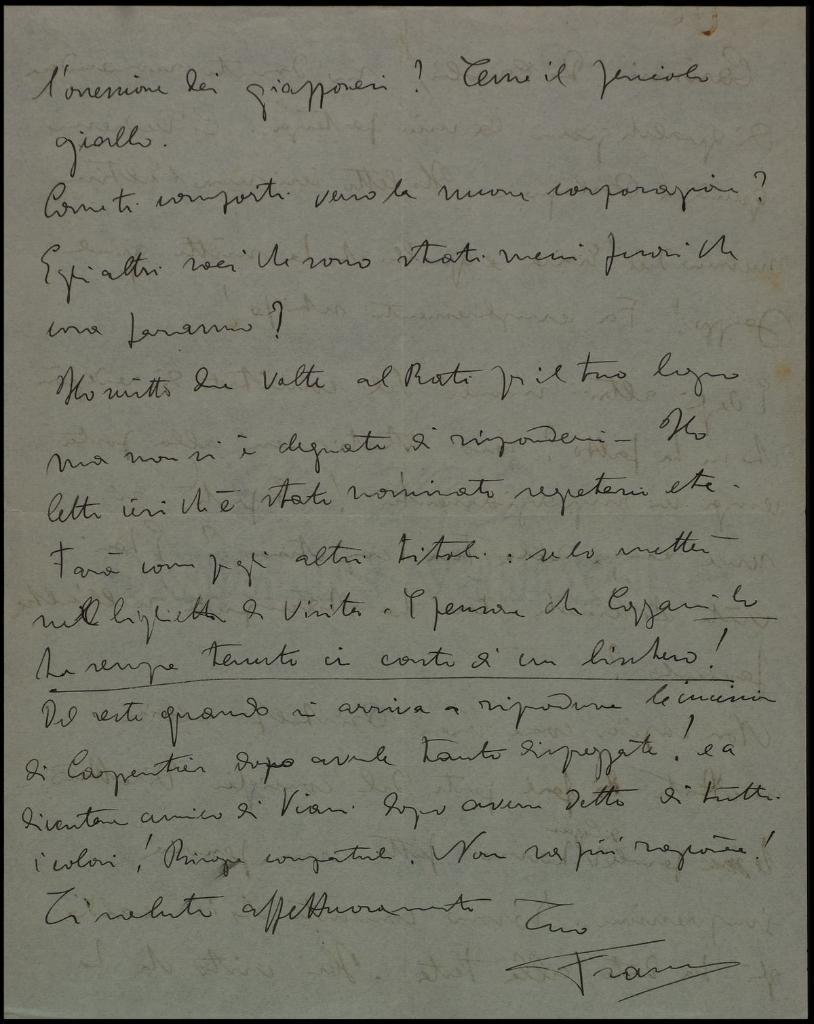 l'ossessione dei giapponesi? Teme il pericolo
giallo.
Come ti comporti verso la nuova corporazione?
E gli altri soci che sono stati messi fuori che
cosa faranno?
Ho scritto due volte al Rati per il tuo legno
ma non si è degnato di rispondermi - Ho
letto ieri che è stato nominato segretario etc.
Farà come per gli altri titoli: se lo metterà
nel biglietto di visita. E pensare che Cozzani lo
ha sempre tenuto in conto di un bischero!
Del resto quando si arriva a riprodurre le incisioni
di Carpentier dopo averle tanto disprezzate! e a
diventare amico di Viani dopo averne detto di tutti
i colori! Bisogna compatirli. Non si può ragionare!
Ti saluto affettuosamente Tuo